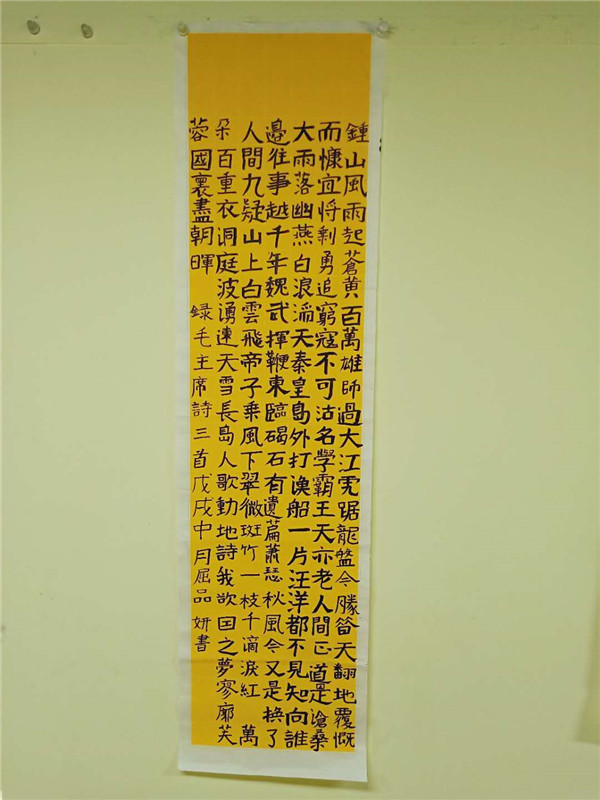 鍾山風雨起蒼黃百萬雄師過大江虎踞龍盤今勝昔天翻地覆慨
而慷宜將剩勇追窮寇不可沽名學霸王天亦老人間正道是滄桑
大雨落幽燕白浪滔天秦皇島外打漁船一片汪洋都不見知向誰
邊往事越千年魏武揮鞭東臨碣石有遺篇蕭瑟秋風今又是換了
人間九疑山上白雲飛帝子乘風下翠微斑竹一枝千滴淚紅 萬
朵百重衣洞庭波湧連天雪長島人歌動地詩我欲因之夢寥廓芙
蓉國裏盡朝暉 録毛主席詩三首戊戌中月屈品妍書